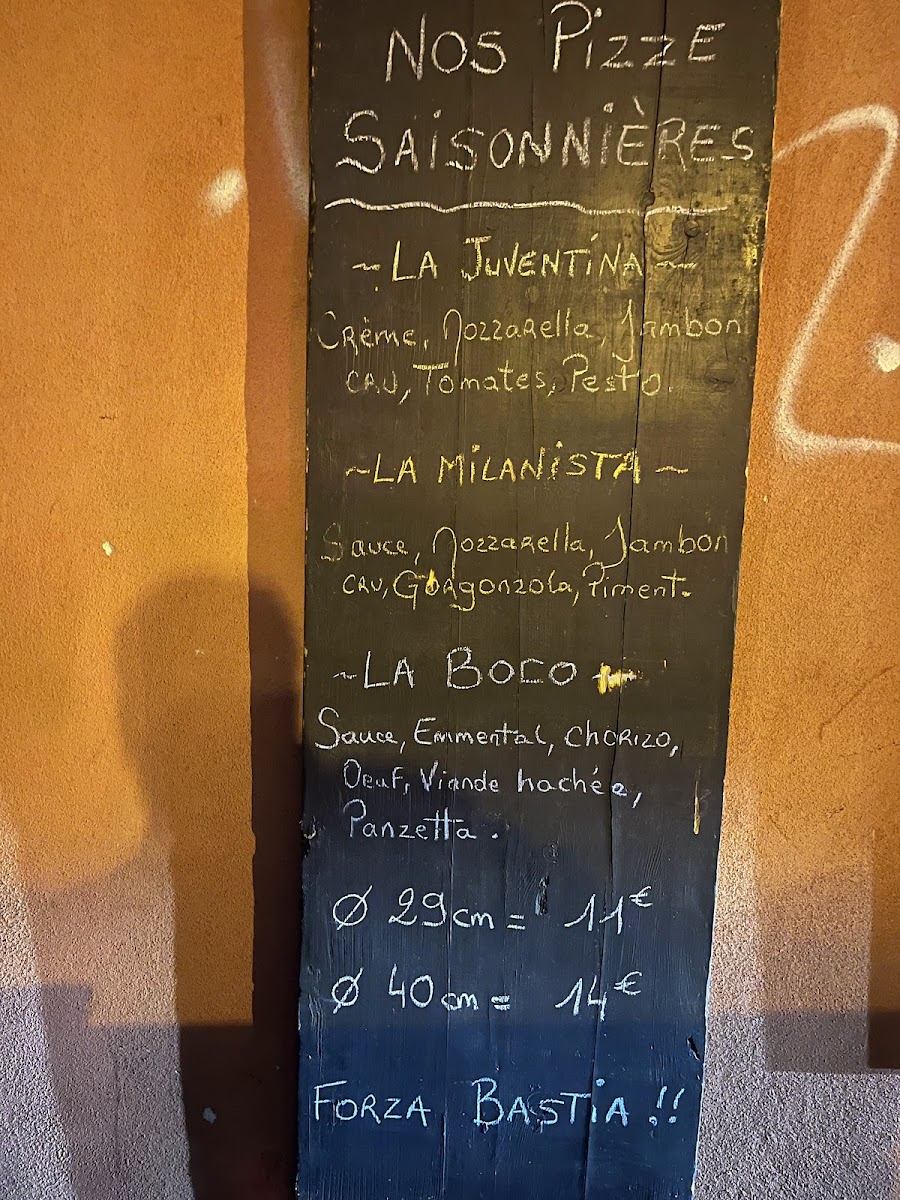 NOS PizzE
SAiSONNIÈRES
~ LA JUVENTíNA ~
Crème, Mozzarella, Jambon
CRU, Tomates, Pesto.
~LA MiLANiSTA ~
Sauce, Mozzarella, Jambon
CRU, Gorgonzola, Piment.
~LA BOCO ~
Sauce, Emmental, CHORIZO,
Oeuf, Viande hachée,
Panzetta.
Ø 29cm = 11€
Ø 40cm = 14€
FORZA BASTiA !!